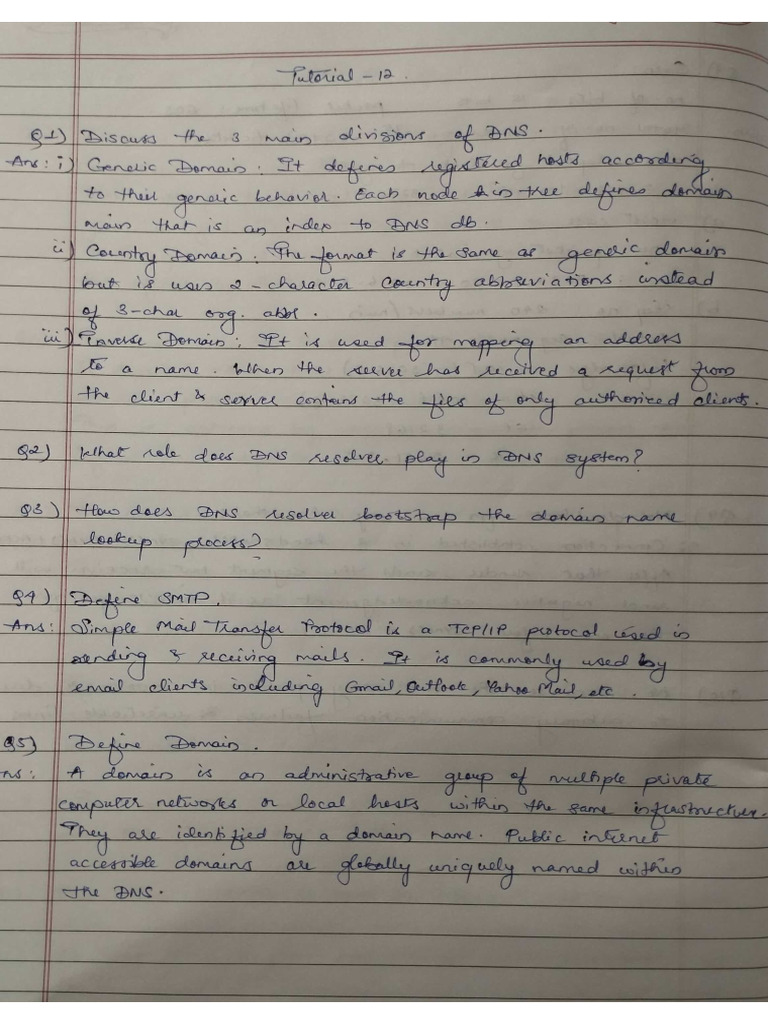 Tutorial - 12.
Q1) Discuss the 3 main divisions of DNS.
Ans: i) Generic Domain: It defines registered hosts according
to their generic behavior. Each node in tree defines domain
main that is an index to DNS db.
ii) Country Domain: The format is the same as generic domain
but is uses 2-character country abbreviations instead
of 3-char org. abbr.
iii) Inverse Domain: It is used for mapping an address
to a name. When the server has received a request from
the client & server contains the files of only authorized clients.
Q2) What role does DNS resolver play in DNS system?
Q3) How does DNS resolver bootstrap the domain name
lookup process?
Q4) Define SMTP.
Ans: Simple Mail Transfer Protocol is a TCP/IP protocol used in
sending & receiving mails. It is commonly used by
email clients including Gmail, Outlook, Yahoo Mail, etc.
Q5) Define Domain.
ns: A domain is an administrative group of multiple private
computer networks or local hosts within the same infrastructure.
They are identified by a domain name. Public internet
accessible domains are globally uniquely named within
the DNS.